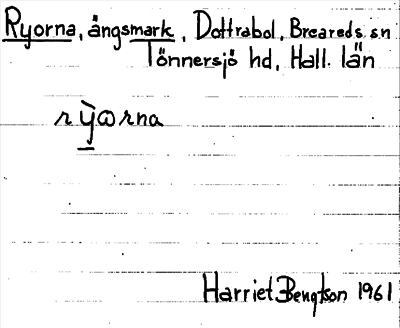 Ryorna, ängsmark, Dottrabol, Breareds sn
Tönnersjö hd, Hall. län
rỳωrna
Harriet Bengtson 1961